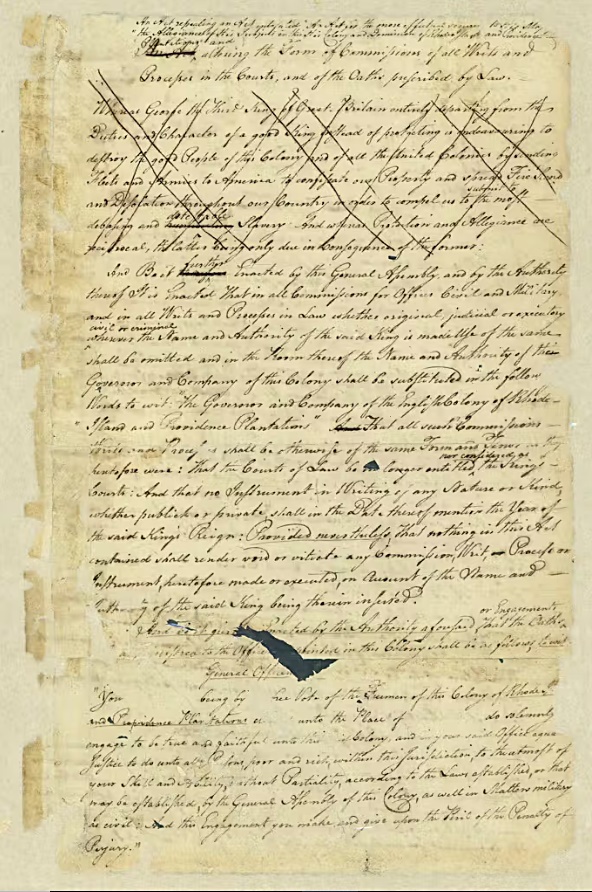 An Act repealing an Act entitled "An Act for the more effectual securing to His Majesty
the Allegiance of His Subjects in this His Colony and Dominion of Rhode Island and Providence
Plantations" and
altering the Form of Commissions of all Writs and
Processes in the Courts, and of the Oaths prescribed by Law.
Whereas George the Third King of Great Britain entirely departing from the
Duties and Character of a good King instead of protecting is endeavouring to
destroy the good People of this Colony and of all the United Colonies by sending
Fleets and Armies to America to confiscate our Property and spread Fire Sword
and Desolation throughout our Country in order to compel us to
submit to
the most
debasing and
detestable
Slavery: And whereas Protection and Allegiance are
reciprocal, the latter being only due in Consequence of the former:
And Be it
further
Enacted by this General Assembly, and by the Authority
thereof It is Enacted That in all Commissions for Offices Civil and Military
and in all Writs and Processes in Law whether original, judicial or executory
civil or criminal
wherever the Name and Authority of the said King is made Use of the same
shall be omitted and in the Room thereof the Name and Authority of the
Governor and Company of this Colony shall be substituted in the follow
Words to wit: "The Governor and Company of the English Colony of Rhode-
Island and Providence Plantations" That all such Commissions
Writs and Processes shall be otherwise of the same Form and Tenor as they
heretofore were: That the Courts of Law be no longer entitled
nor considered as
the Kings
Courts: And that no Instrument in Writing of any Nature or Kind
whether publick or private shall in the Date thereof mention the Year of
the said King's Reign: Provided nevertheless, that nothing in this Act
contained shall render void or vitiate any Commission, Writ, or Process or
Instrument, heretofore made or executed, on Account of the Name and
Authority of the said King being therein inserted.
And be it Enacted by the Authority aforesaid That the Oaths
or Engagements
to the Officers in this Colony shall be as follows to wit
General Officers
"You being by the Vote of the Freemen of this Colony of Rhode
and Providence Plantations unto the Place of do solemnly
engage to be true and faithful unto this Colony, and in your said Office equal
Justice to do unto all Persons, poor and rich, within this Jurisdiction, to the utmost of
your Skill and Ability, without Partiality, according to the Laws established, or that
may be established, by the General Assembly of this Colony, as well in Matters military
as civil: And this Engagement you make and give upon the Peril of the Penalty of
Perjury."